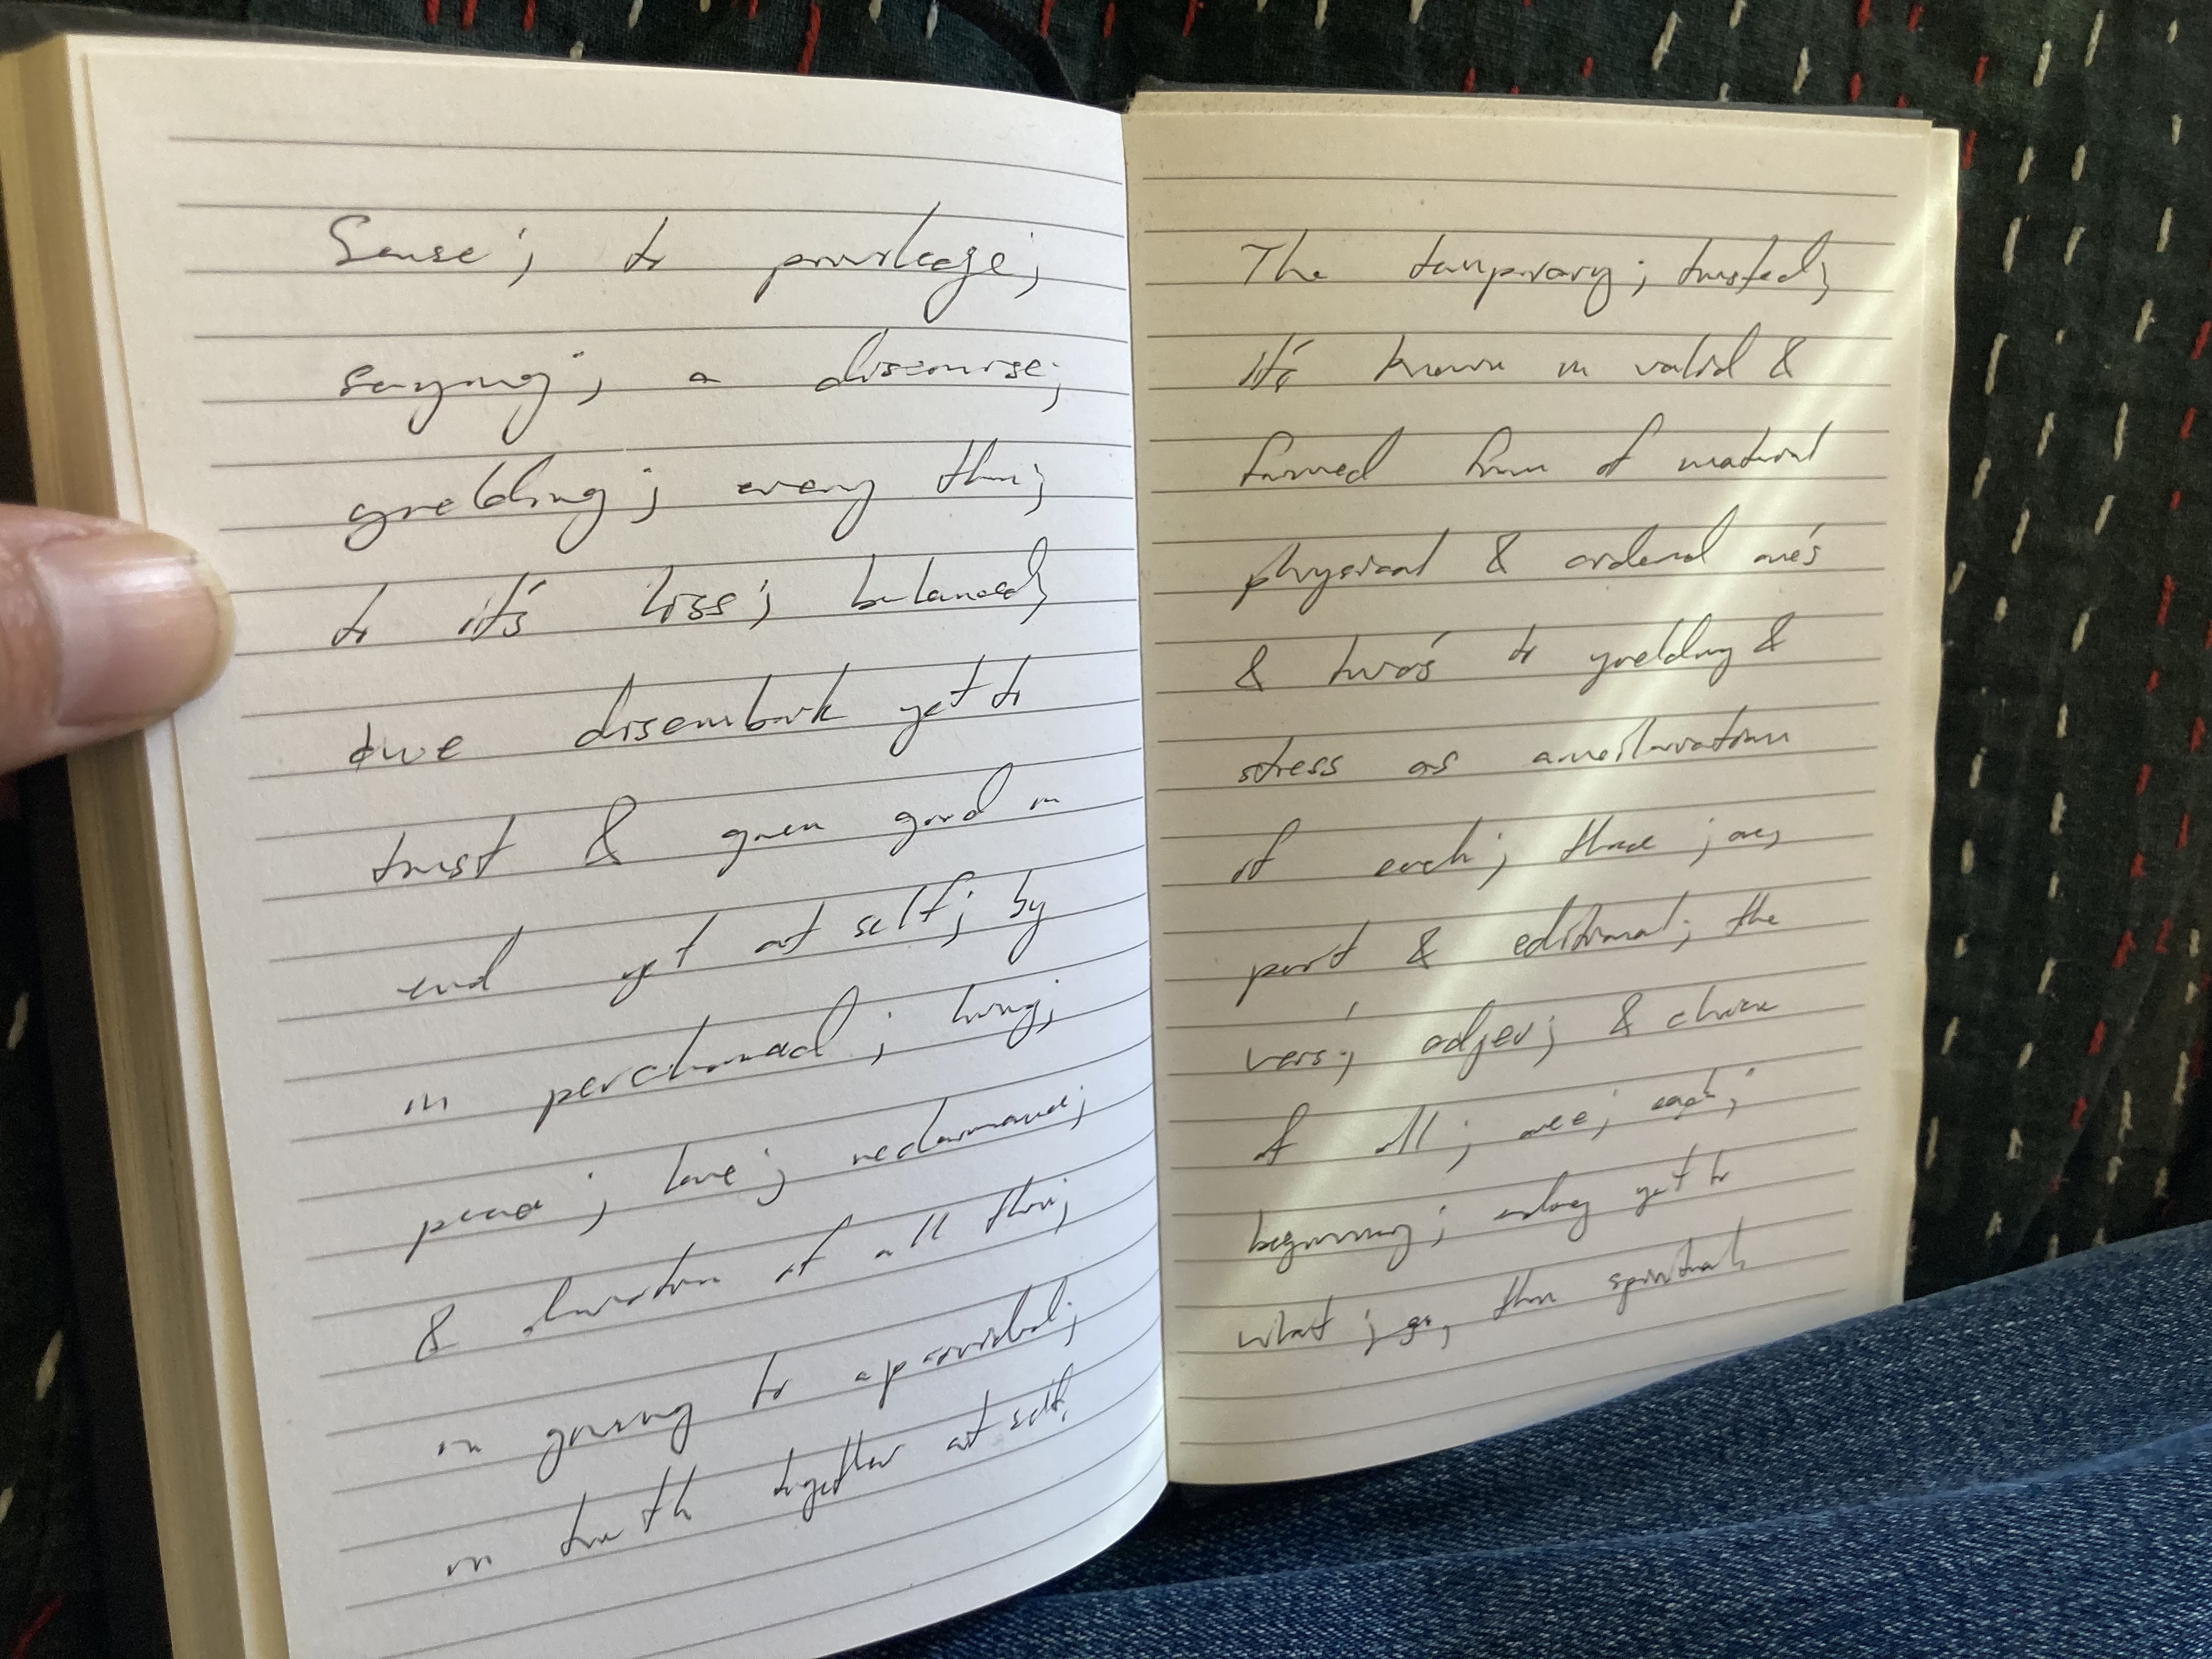 Sense; to privilege;
saying; a discourse;
yielding; every thin;
to it's loss; balanced;
due disembark yet to
trust & given good in
end yet at self; by
in perchanced; living;
peace; love;
& of all thin;
in giving to
in truth together at self.
The temporary; trusted;
it's known in valid &
formed from of material
physical & ordered one's
& two's to yielding &
stress as amelioration
of each; three; one,
part & editional; the
vers; adjev; & choice
of all; one; each;
beginning; ending yet to
what; go, thin spiritual,